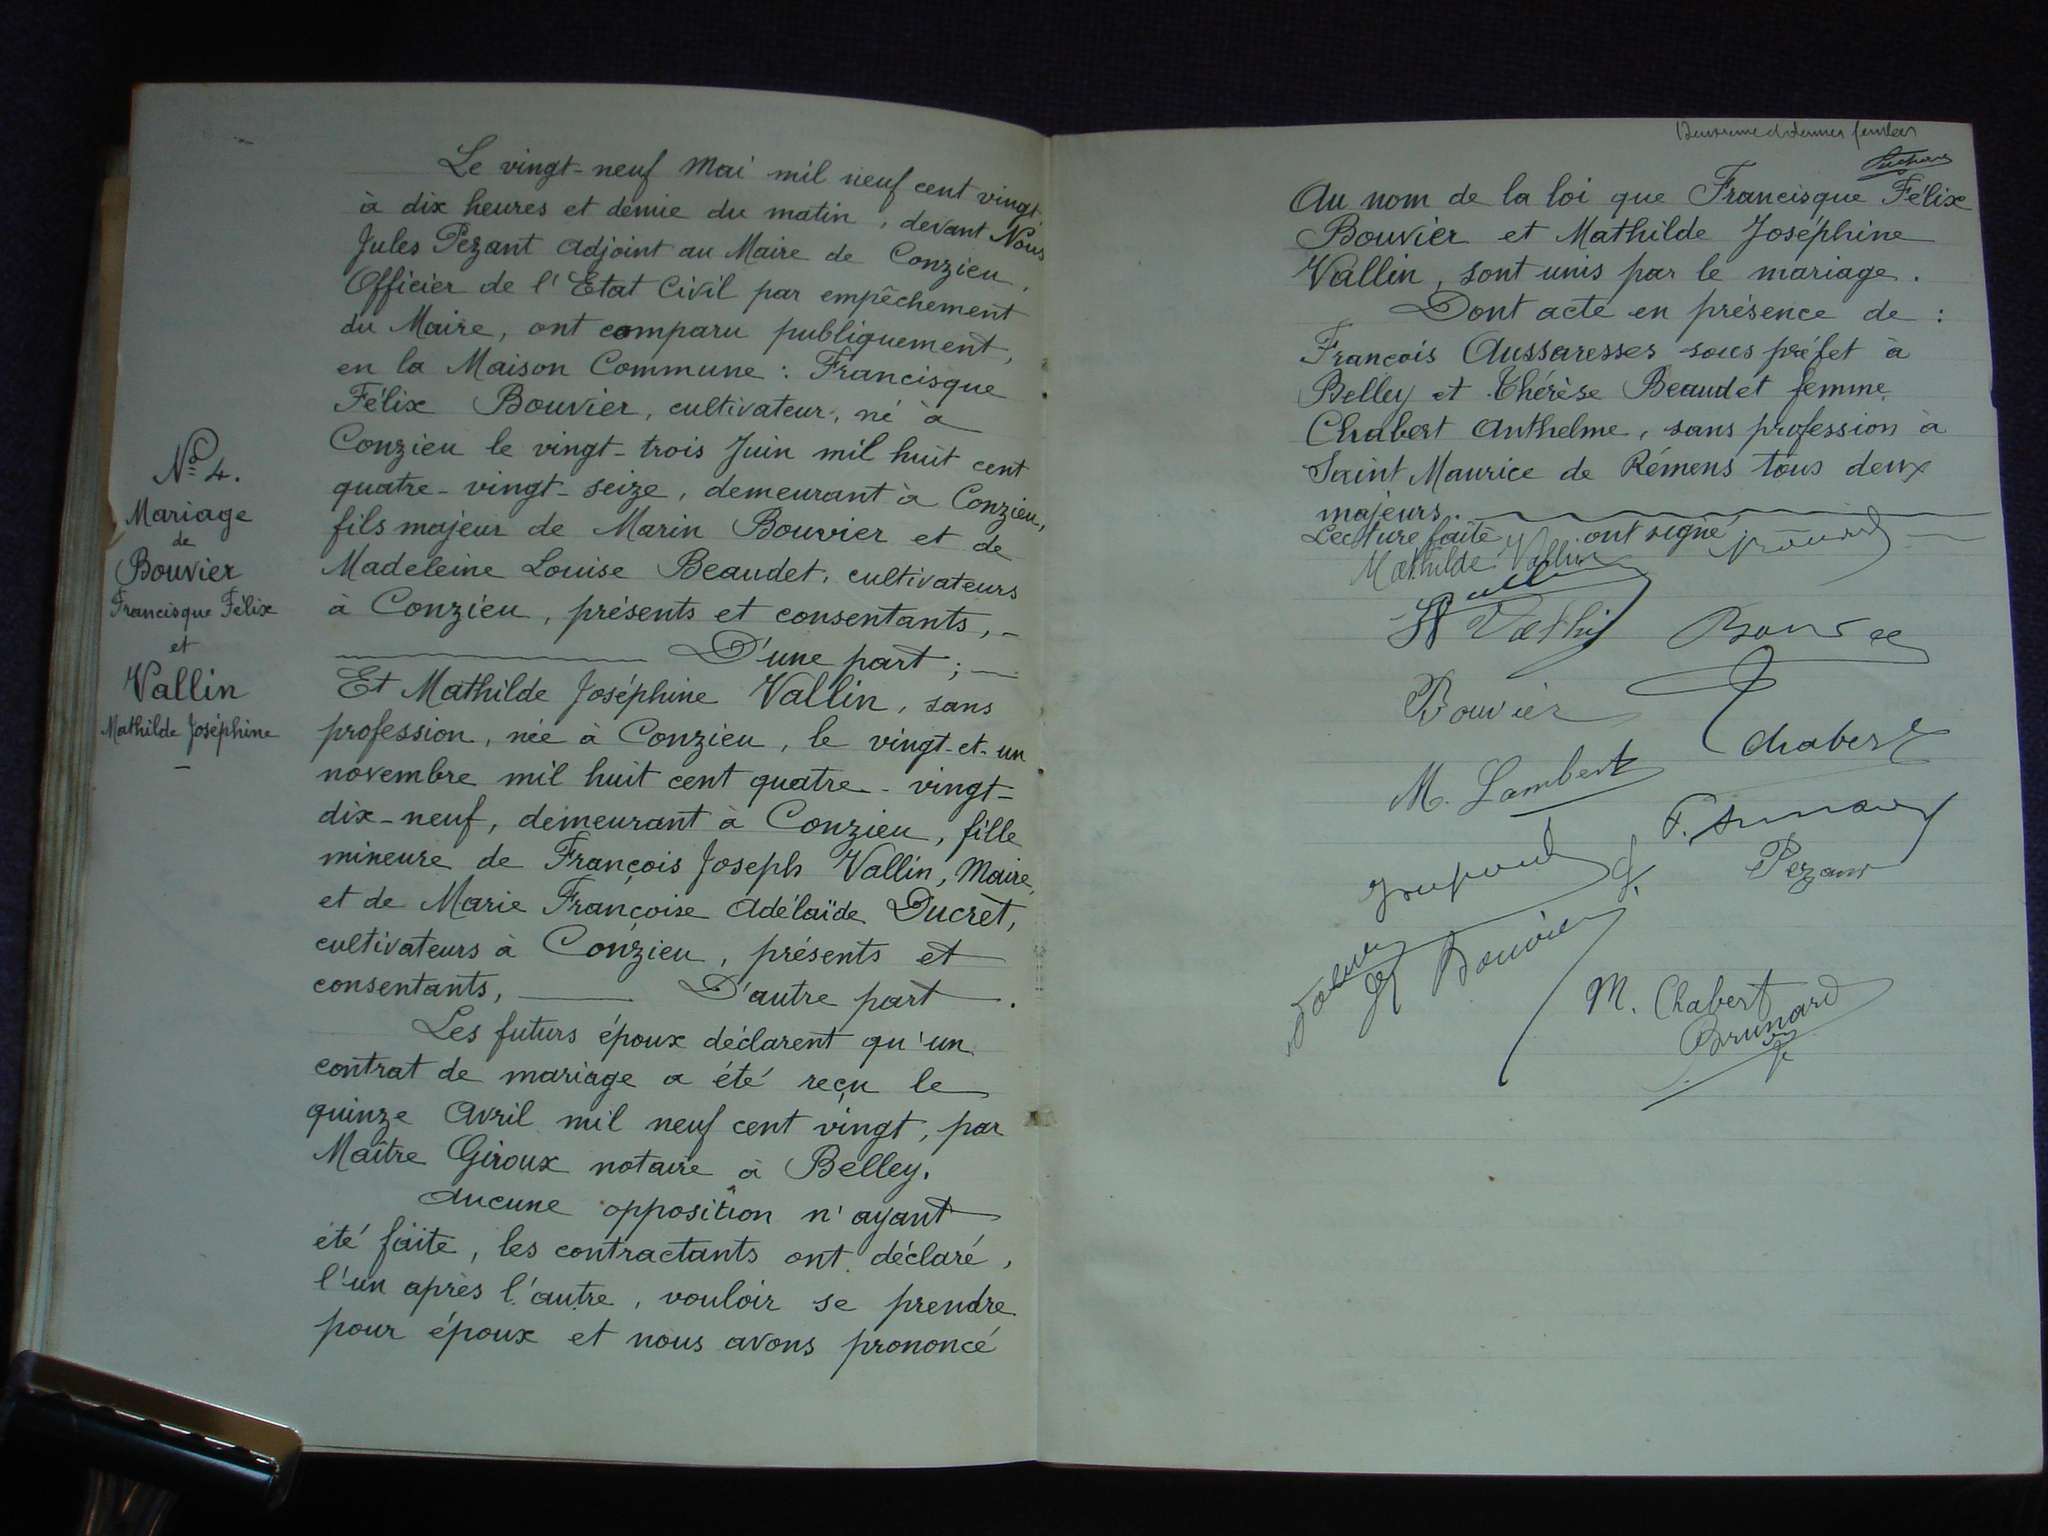 Le vingt-neuf Mai mil neuf cent vingt
à dix heures et demie du matin, devant Nous
Jules Pezant Adjoint au Maire de Conzieu,
Officier de l'Etat Civil par empêchement
du Maire, ont comparu publiquement,
en la Maison Commune : Francisque
Félix Bouvier, cultivateur, né à
Conzieu le vingt-trois Juin mil huit cent
quatre-vingt-seize, demeurant à Conzieu,
fils majeur de Marin Bouvier et de
Madeleine Louise Beaudet, cultivateurs
à Conzieu, présents et consentants,
D'une part ;
Et Mathilde Joséphine Vallin, sans
profession, née à Conzieu, le vingt-et-un
novembre mil huit cent quatre-vingt-
dix-neuf, demeurant à Conzieu, fille
mineure de François Joseph Vallin, Maire,
et de Marie Françoise Adélaïde Ducrèt,
cultivateurs à Conzieu, présents et
consentants, D'autre part.
Les futurs époux déclarent qu'un
contrat de mariage a été reçu le
quinze Avril mil neuf cent vingt, par
Maître Giroux notaire à Belley.
Aucune opposition n'ayant
été faite, les contractants ont déclaré,
l'un après l'autre, vouloir se prendre
pour époux et nous avons prononcé
No 4.
Mariage
de
Bouvier
Francisque Félix
et
Vallin
Mathilde Joséphine
Au nom de la loi que Francisque Félix
Bouvier et Mathilde Joséphine
Vallin, sont unis par le mariage.
Dont acte en présence de :
François Aussaresses sous préfet à
Belley et Thérèse Beaudet femme
Chabert Anthelme, sans profession à
Saint Maurice de Rémens tous deux
majeurs.
Lecture faite, ont signé
Mathilde Vallin
Bouvier
Chabert
M. Lambert
Pezant
Bouvier
M. Chabert
Brunard